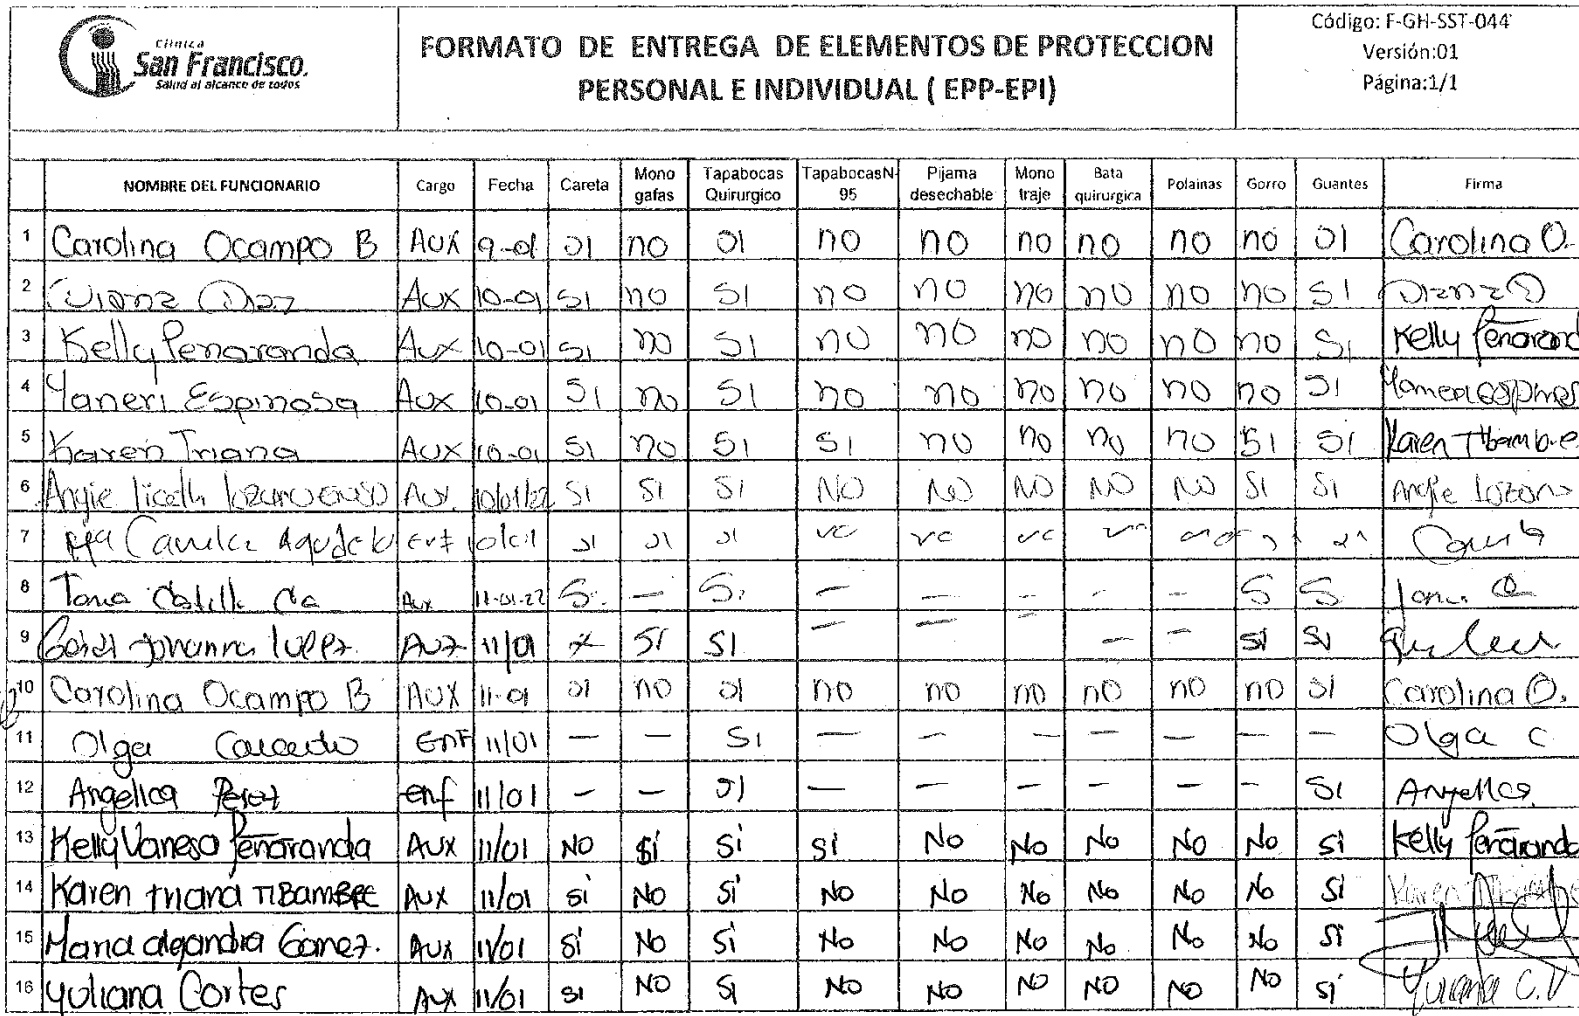 Clínica
San Francisco.
Salud al alcance de todos
FORMATO DE ENTREGA DE ELEMENTOS DE PROTECCION
PERSONAL E INDIVIDUAL ( EPP-EPI)
Código: F-GH-SST-044
Versión:01
Página:1/1
NOMBRE DEL FUNCIONARIO Cargo Fecha Careta Mono gafas Tapabocas Quirurgico TapabocasN-95 Pijama desechable Mono traje Bata quirurgica Polainas Gorro Guantes Firma
1 Carolina Ocampo B AUX 9-01 SI no SI no no no no no no SI Carolina O.
2 Diana Diaz AUX 10-01 SI no SI no no no no no no SI Diana D
3 Kelly Penaranda Aux 10-01 SI no SI no no no no no no SI Kelly Peñarand
4 Yaneri Espinosa Aux 10-01 SI no SI no no no no no no SI
5 Karen Triana AUX 10-01 SI no SI SI no no no no SI SI Karen Tibambre
6 Angie Aux. 10/01/22 SI SI SI NO NO NO NO NO SI SI Angie Lozano
7 SI SI SI
8 Aux 11-01-22 S. — S. — — — — — S S
9 Johanna AUX 11/01 SI SI — — — — — SI SI
10 Carolina Ocampo B AUX 11-01 SI no SI no no no no no no SI Carolina O.
11 Olga Caicedo ENF 11/01 — — SI — — — — — — — Olga C
12 Angelica Perez enf 11/01 — — SI — — — — — — SI Angelica
13 Kelly Vanesa Peñaranda AUX 11/01 NO Sí Sí Sí No No No No No Sí Kelly Peñaranda
14 Karen Triana TIBAMBRE AUX 11/01 Sí No Sí No No No No No No Sí Karen
15 Maria alejandra Gomez. AUX 11/01 Sí No Sí No No No No No No Sí
16 Yuliana Cortes AUX 11/01 SI NO Sí No No No No No No Sí Yuliana C.V